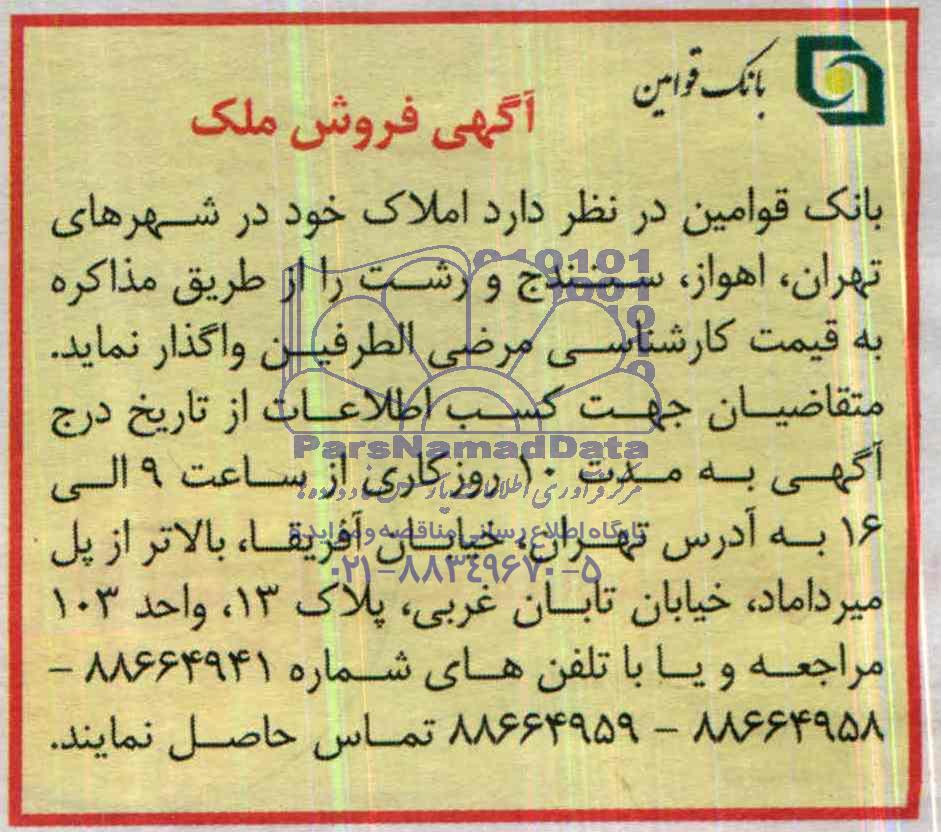 بانک قوامین
آگهی فروش ملک
بانک قوامین در نظر دارد املاک خود در شهرهای
تهران، اهواز، سنندج و رشت را از طریق مذاکره
به قیمت کارشناسی مرضی الطرفین واگذار نماید.
متقاضیان جهت کسب اطلاعات از تاریخ درج
آگهی به مدت ۱۰ روزکاری از ساعت ۹ الی
۱۶ به آدرس تهران، خیابان آفریقا، بالاتر از پل
میرداماد، خیابان تابان غربی، پلاک ۱۳، واحد ۱۰۳
مراجعه و یا با تلفن های شماره ۸۸۶۶۴۹۴۱ –
۸۸۶۶۴۹۵۸ – ۸۸۶۶۴۹۵۹ تماس حاصل نمایند.
ParsNamadData
پایگاه اطلاع رسانی مناقصه و مزایده
۰۲۱-۸۸۳۴۹۶۷۰-۵